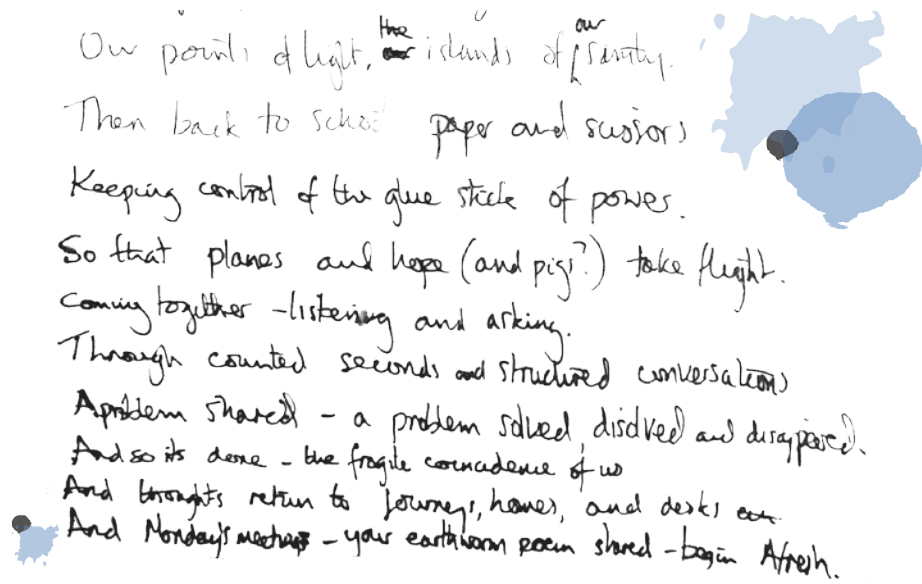 Our points of light, the islands of our sanity.
Then back to school paper and scissors
Keeping control of the glue stick of power.
So that planes and hope (and pigs?) take flight.
Coming together - listening and asking.
Through counted seconds and structured conversations
A problem shared - a problem solved, disolved and disappeared.
And so its done - the fragile coincidence of us
And thoughts return to journeys, homes, and desks
And Monday's meetings - your earthworm poem shared - begin Afresh.